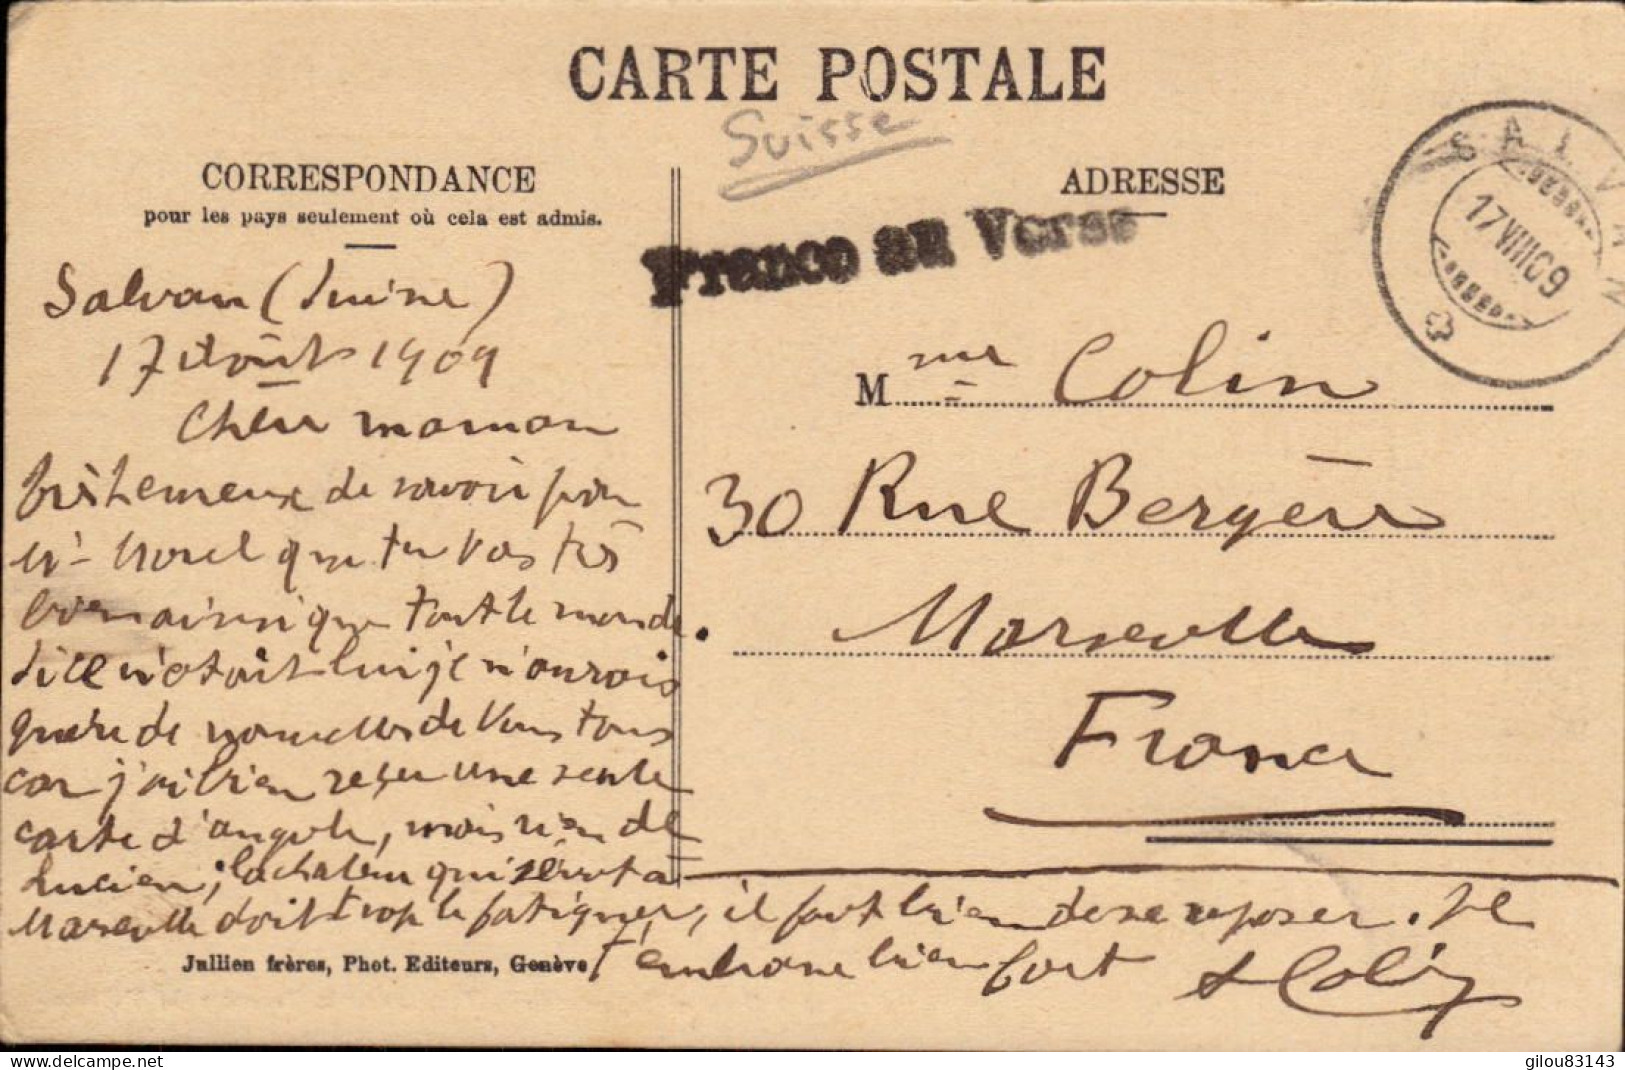 CARTE POSTALE
Suisse
CORRESPONDANCE
pour les pays seulement où cela est admis.
ADRESSE
Franco au Verso
SALVAN
17 VIII 09
Salvan (Suisse)
17 Août 1909
Chère maman
très heureux de savoir par
que tu vas très
bien ainsi que tout le monde
si ce n'était lui je n'aurois
guère de nouvelles de vous tous
car j'ai bien reçu une seule
carte d'angèle, mais rien de
Lucien; la chaleur qui sévit à
Marseille doit trop le fatiguer, il faut bien de se reposer. Je
t'embrasse bien fort
Colin
Mme Colin
30 Rue Bergère
Marseille
France
Jullien frères, Phot. Editeurs, Genève
delcampe.net
gilou83143